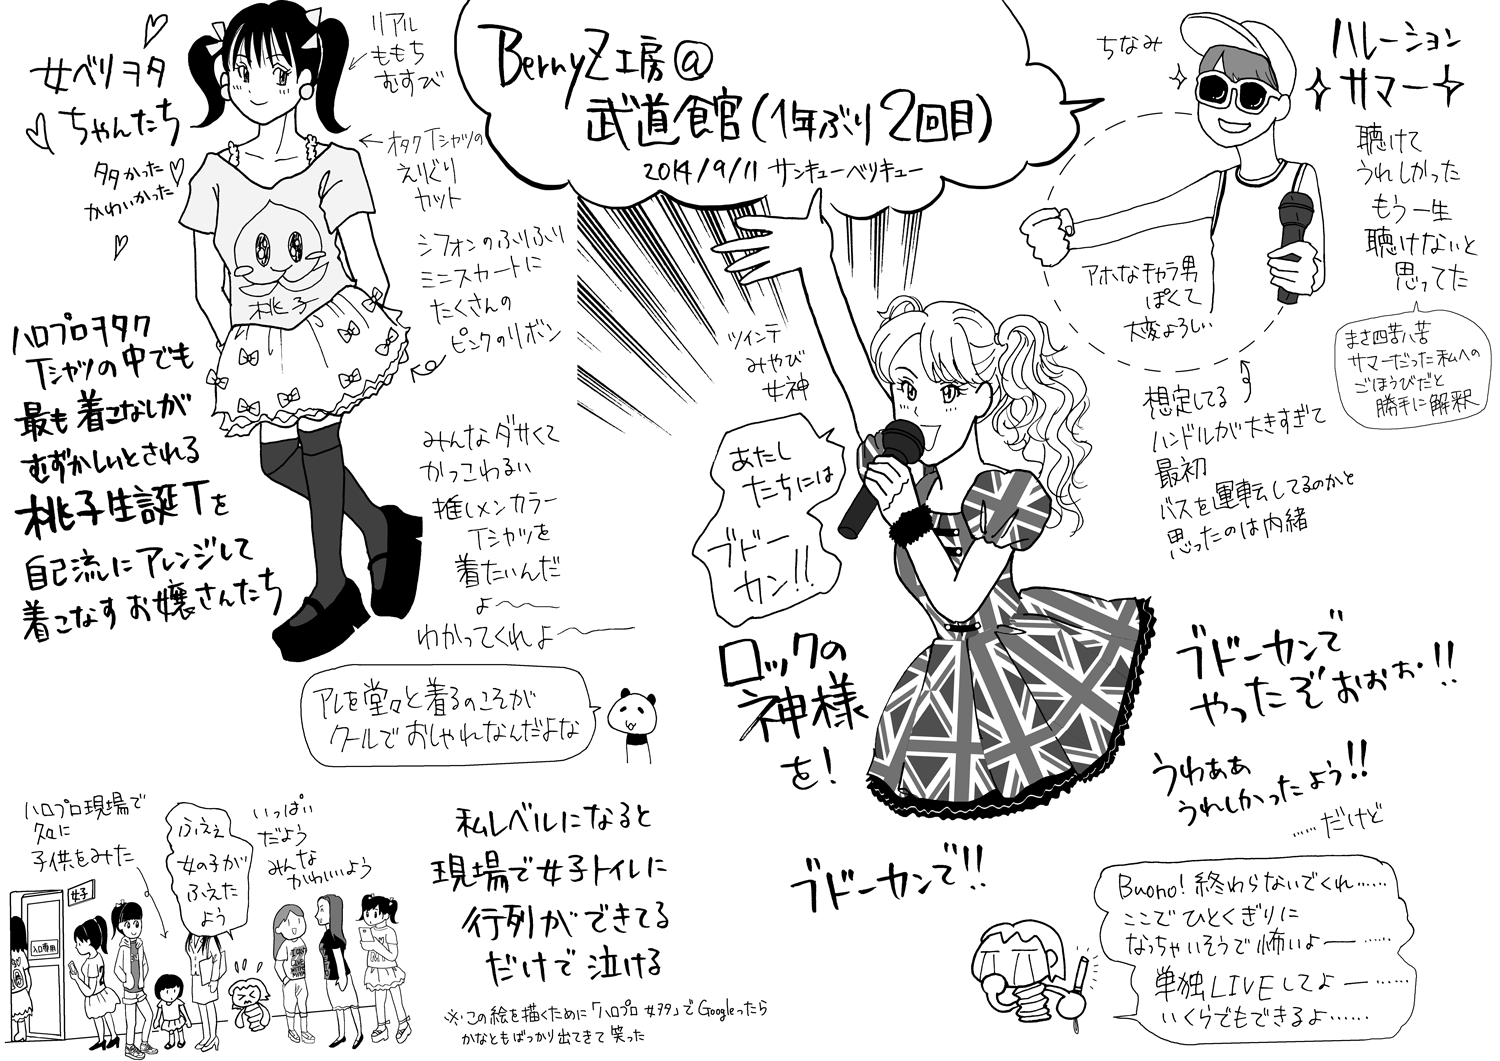 BerryZ工房@
武道館(1年ぶり2回目)
2014/9/11 サンキューベリキュー
女ベリヲタ
ちゃんたち
多かった
かわいかった
リアル
ももち
むすび
オタクTシャツの
えりぐり
カット
シフォンのふりふり
ミニスカートに
たくさんの
ピンクのリボン
桃子
ハロプロヲタク
Tシャツの中でも
最も着こなしが
むずかしいとされる
桃子生誕Tを
自己流にアレンジして
着こなすお嬢さんたち
みんなダサくて
かっこわるい
推しメンカラー
Tシャツを
着たいんだ
よ〜〜
わかってくれよ〜〜
アレを堂々と着るのこそが
クールでおしゃれなんだよな
ハロプロ現場で
久々に
子供をみた
ふえぇ
女の子が
ふえた
よう
いっぱい
だよう
みんな
かわいいよう
女子
入口専用
私レベルになると
現場で女子トイレに
行列ができてる
だけで泣ける
※この絵を描くために「ハロプロ 女ヲタ」でGoogleったら
かなともばっかり出てきて笑った
ツインテ
みやび
女神
あたし
たちには
ブドー
カン!!
ロックの
神様
を!
ブドーカンで!!
ブドーカンで
やったぞおぉぉ!!
うわああ
うれしかったよう!!
……だけど
Buono!終わらないでくれ……
ここでひとくぎりに
なっちゃいそうで怖いよー……
単独LIVEしてよー……
いくらでもできるよ……
ちなみ
ハレーション
サマー
聴けて
うれしかった
もう一生
聴けないと
思ってた
まさ四苦八苦
サマーだった私への
ごほうびだと
勝手に解釈
アホなギャラ男
ぽくて
大変よろしい
想定してる
ハンドルが大きすぎて
最初
バスを運転してるのかと
思ったのは内緒